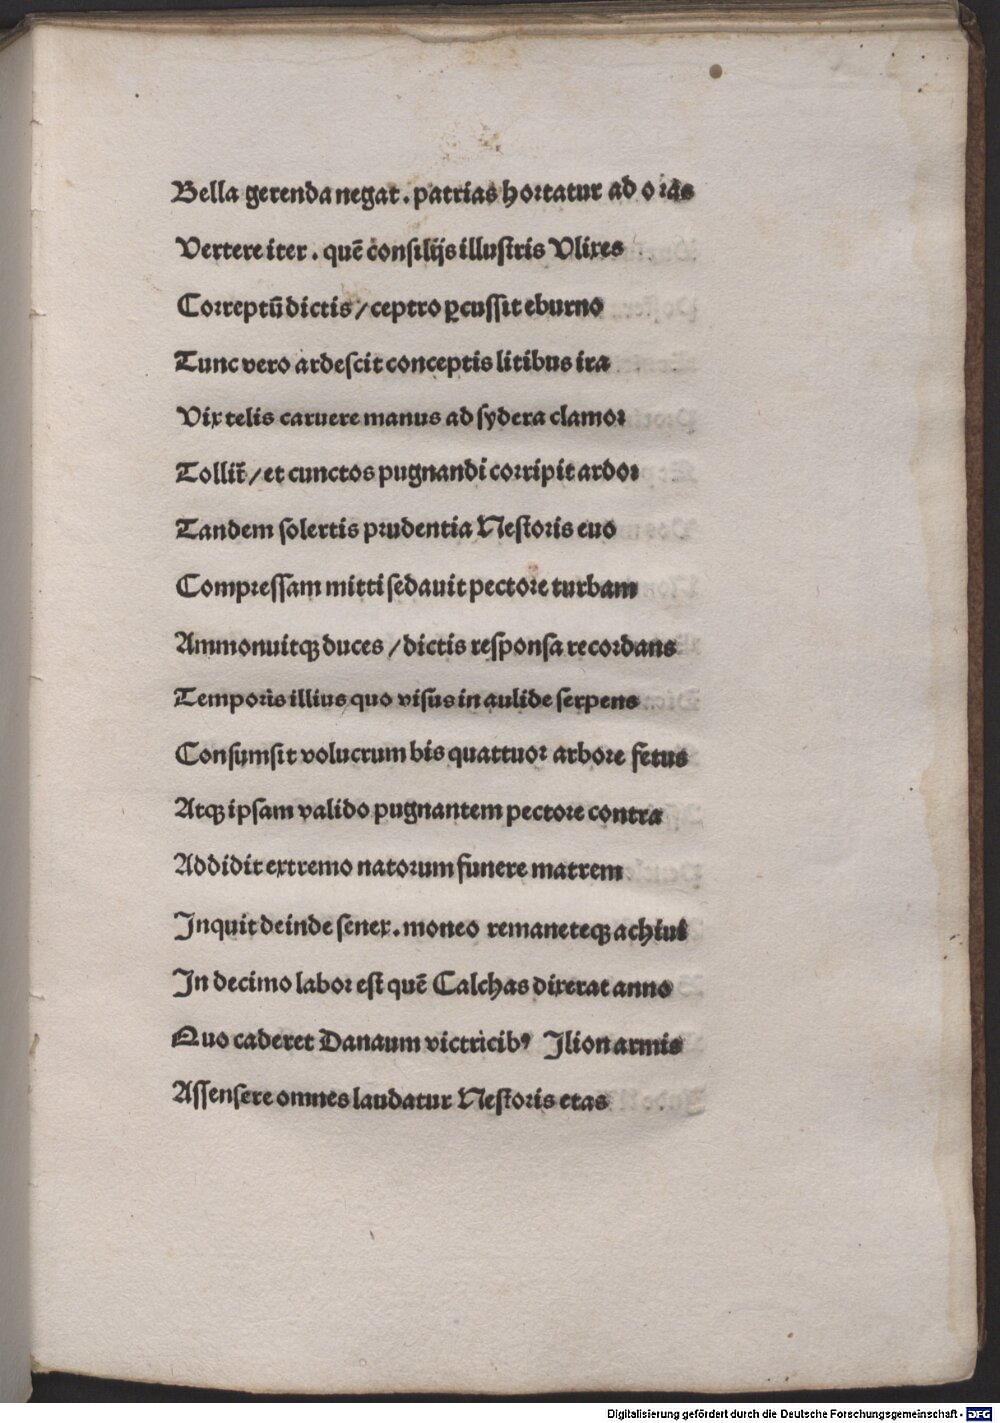 Bella gerenda negat . patrias hortatur ad oras
Vertere iter . quē consilijs illustris Vlixes
Correptū dictis / ceptro ꝑcussit eburno
Tunc vero ardescit conceptis litibus ira
Vix telis caruere manus ad sydera clamor
Tollit̄ / et cunctos pugnandi corripit ardor
Tandem solertis prudentia Nestoris euo
Compressam mitti sedauit pectore turbam
Ammonuitqꝫ duces / dictis responsa recordans
Temporis illius quo visus in aulide serpens
Consumsit volucrum bis quattuor arbore fetus
Atqꝫ ipsam valido pugnantem pectore contra
Addidit extremo natorum funere matrem
Inquit deinde senex . moneo remaneteqꝫ achiui
In decimo labor est quē Calchas dixerat anno
Quo caderet Danaum victricibꝰ Ilion armis
Assensere omnes laudatur Nestoris etas
Digitalisierung gefördert durch die Deutsche Forschungsgemeinschaft - DFG